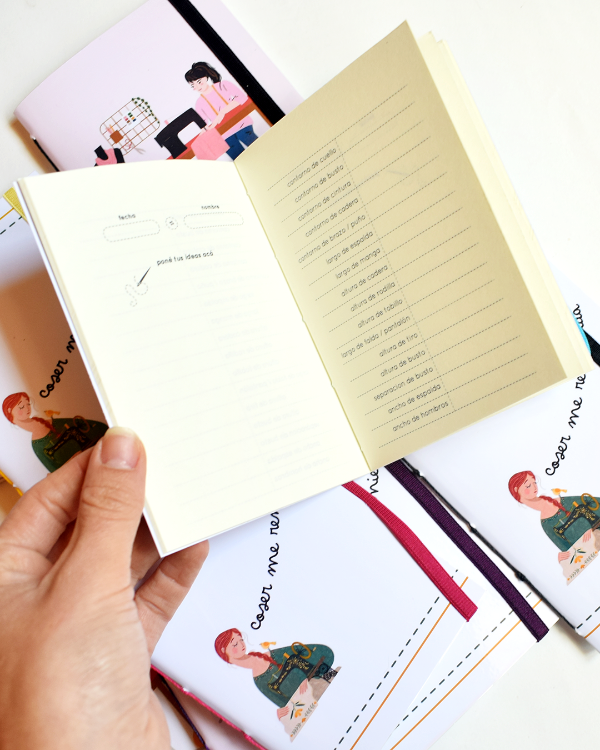 fecha
nombre
poné tus ideas acá
contorno de cuello
contorno de busto
contorno de cintura
contorno de cadera
contorno de brazo / puño
largo de espalda
largo de manga
altura de cadera
altura de rodilla
altura de tobillo
largo de falda / pantalón
altura de tiro
altura de busto
separacion de busto
ancho de espalda
ancho de hombros
coser
coser me
coser me re